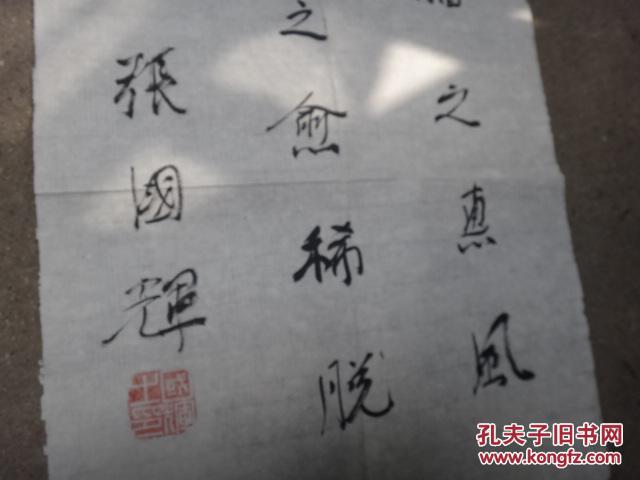 之惠風
之愈稀脱
張國輝
孔夫子旧书网
www.kongfz.com